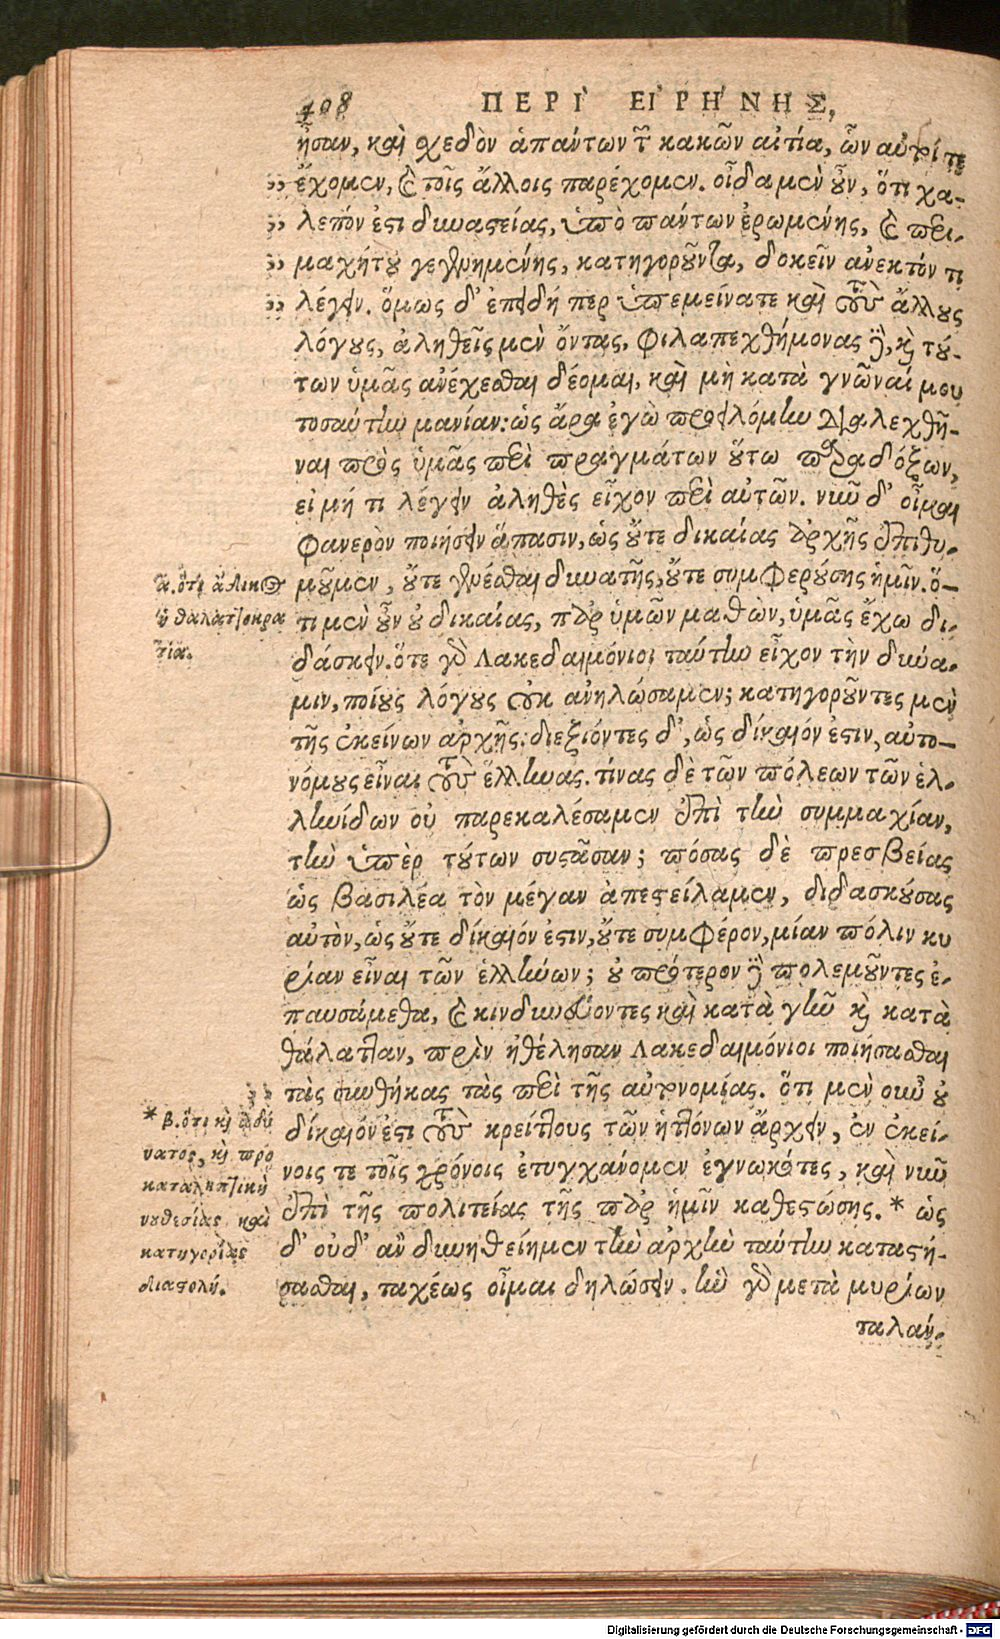 408 ΠΕΡΙ` ΕΙ᾿ΡΗ´ΝΗΣ,
ἦσαν, καὶ σχεδὸν ἁπάντων τῶν κακῶν αἰτία, ὧν αὐτοί τε
„ ἔχομεν, καὶ τοῖς ἄλλοις παρέχομεν. οἶδα μὲν οὖν, ὅτι χα-
„ λεπόν ἐστι δυναστείας, ὑπὸ πάντων ἐρωμένης, καὶ περι-
„ μαχήτου γεγενημένης, κατηγοροῦντα, δοκεῖν ἀνεκτόν τι
„ λέγειν. ὅμως δ' ἐπειδή περ ὑπεμείνατε καὶ τοὺς ἄλλους
λόγους, ἀληθεῖς μὲν ὄντας, φιλαπεχθήμονας δὲ, καὶ τού-
των ὑμᾶς ἀνέχεσθαι δέομαι, καὶ μὴ κατὰ γνῶναί μου
τοσαύτην μανίαν: ὡς ἄρα ἐγὼ προειλόμην διαλεχθῆ-
ναι πρὸς ὑμᾶς περὶ πραγμάτων οὕτω παραδόξων,
εἰ μή τι λέγειν ἀληθὲς εἶχον περὶ αὐτῶν. νῦν δ' οἶμαι
φανερὸν ποιήσειν ἅπασιν, ὡς οὔτε δικαίας ἀρχῆς ἐπιθυ-
μοῦμεν, οὔτε γενέσθαι δυνατῆς, οὔτε συμφερούσης ἡμῖν. ὅ-
τι μὲν οὖν οὐ δικαίας, παρ' ὑμῶν μαθὼν, ὑμᾶς ἔχω δι-
δάσκειν. ὅτε γὰρ Λακεδαιμόνιοι ταύτην εἶχον τὴν δύνα-
μιν, ποίους λόγους οὐκ ἀνηλώσαμεν; κατηγοροῦντες μὲν
τῆς ἐκείνων ἀρχῆς: διεξιόντες δ', ὡς δίκαιόν ἐστιν, αὐτο-
νόμους εἶναι τοὺς ἕλληνας. τίνας δὲ τῶν πόλεων τῶν ἑλ-
ληνίδων οὐ παρεκαλέσαμεν ἐπὶ τὴν συμμαχίαν,
τὴν ὑπὲρ τούτων συστᾶσαν; πόσας δὲ πρεσβείας
ὡς βασιλέα τὸν μέγαν ἀπεστείλαμεν, διδασκούσας
αὐτὸν, ὡς οὔτε δίκαιόν ἐστιν, οὔτε συμφέρον, μίαν πόλιν κυ
ρίαν εἶναι τῶν ἑλλήνων; οὐ πρότερον δὲ πολεμοῦντες ἐ-
παυσάμεθα, καὶ κινδυνεύοντες καὶ κατὰ γῆν καὶ κατὰ
θάλατταν, πρὶν ἠθέλησαν Λακεδαιμόνιοι ποιήσασθαι
τὰς συνθήκας τὰς περὶ τῆς αὐτονομίας. ὅτι μὲν οὖν οὐ
δίκαιόν ἐστι τοὺς κρείττους τῶν ἡττόνων ἄρχειν, ἐν ἐκεί-
νοις τε τοῖς χρόνοις ἐτυγχάνομεν ἐγνωκότες, καὶ νῦν
ἐπὶ τῆς πολιτείας τῆς παρ' ἡμῖν καθεστώσης. * ὡς
δ' οὐδ' ἂν δυνηθείημεν τὴν ἀρχὴν ταύτην καταστή-
σασθαι, ταχέως οἶμαι δηλώσειν. ἣν γὰρ μετὰ μυρίων
ταλάν-
α. ὅτι ἄδικος
ἡ θαλαττοκρα
τία.
* β. ὅτι καὶ ἀδύ
νατος, καὶ προ
καταληπτικὴ
νουθεσίας καὶ
κατηγορίας
διαστολή.
Digitalisierung gefördert durch die Deutsche Forschungsgemeinschaft - DFG